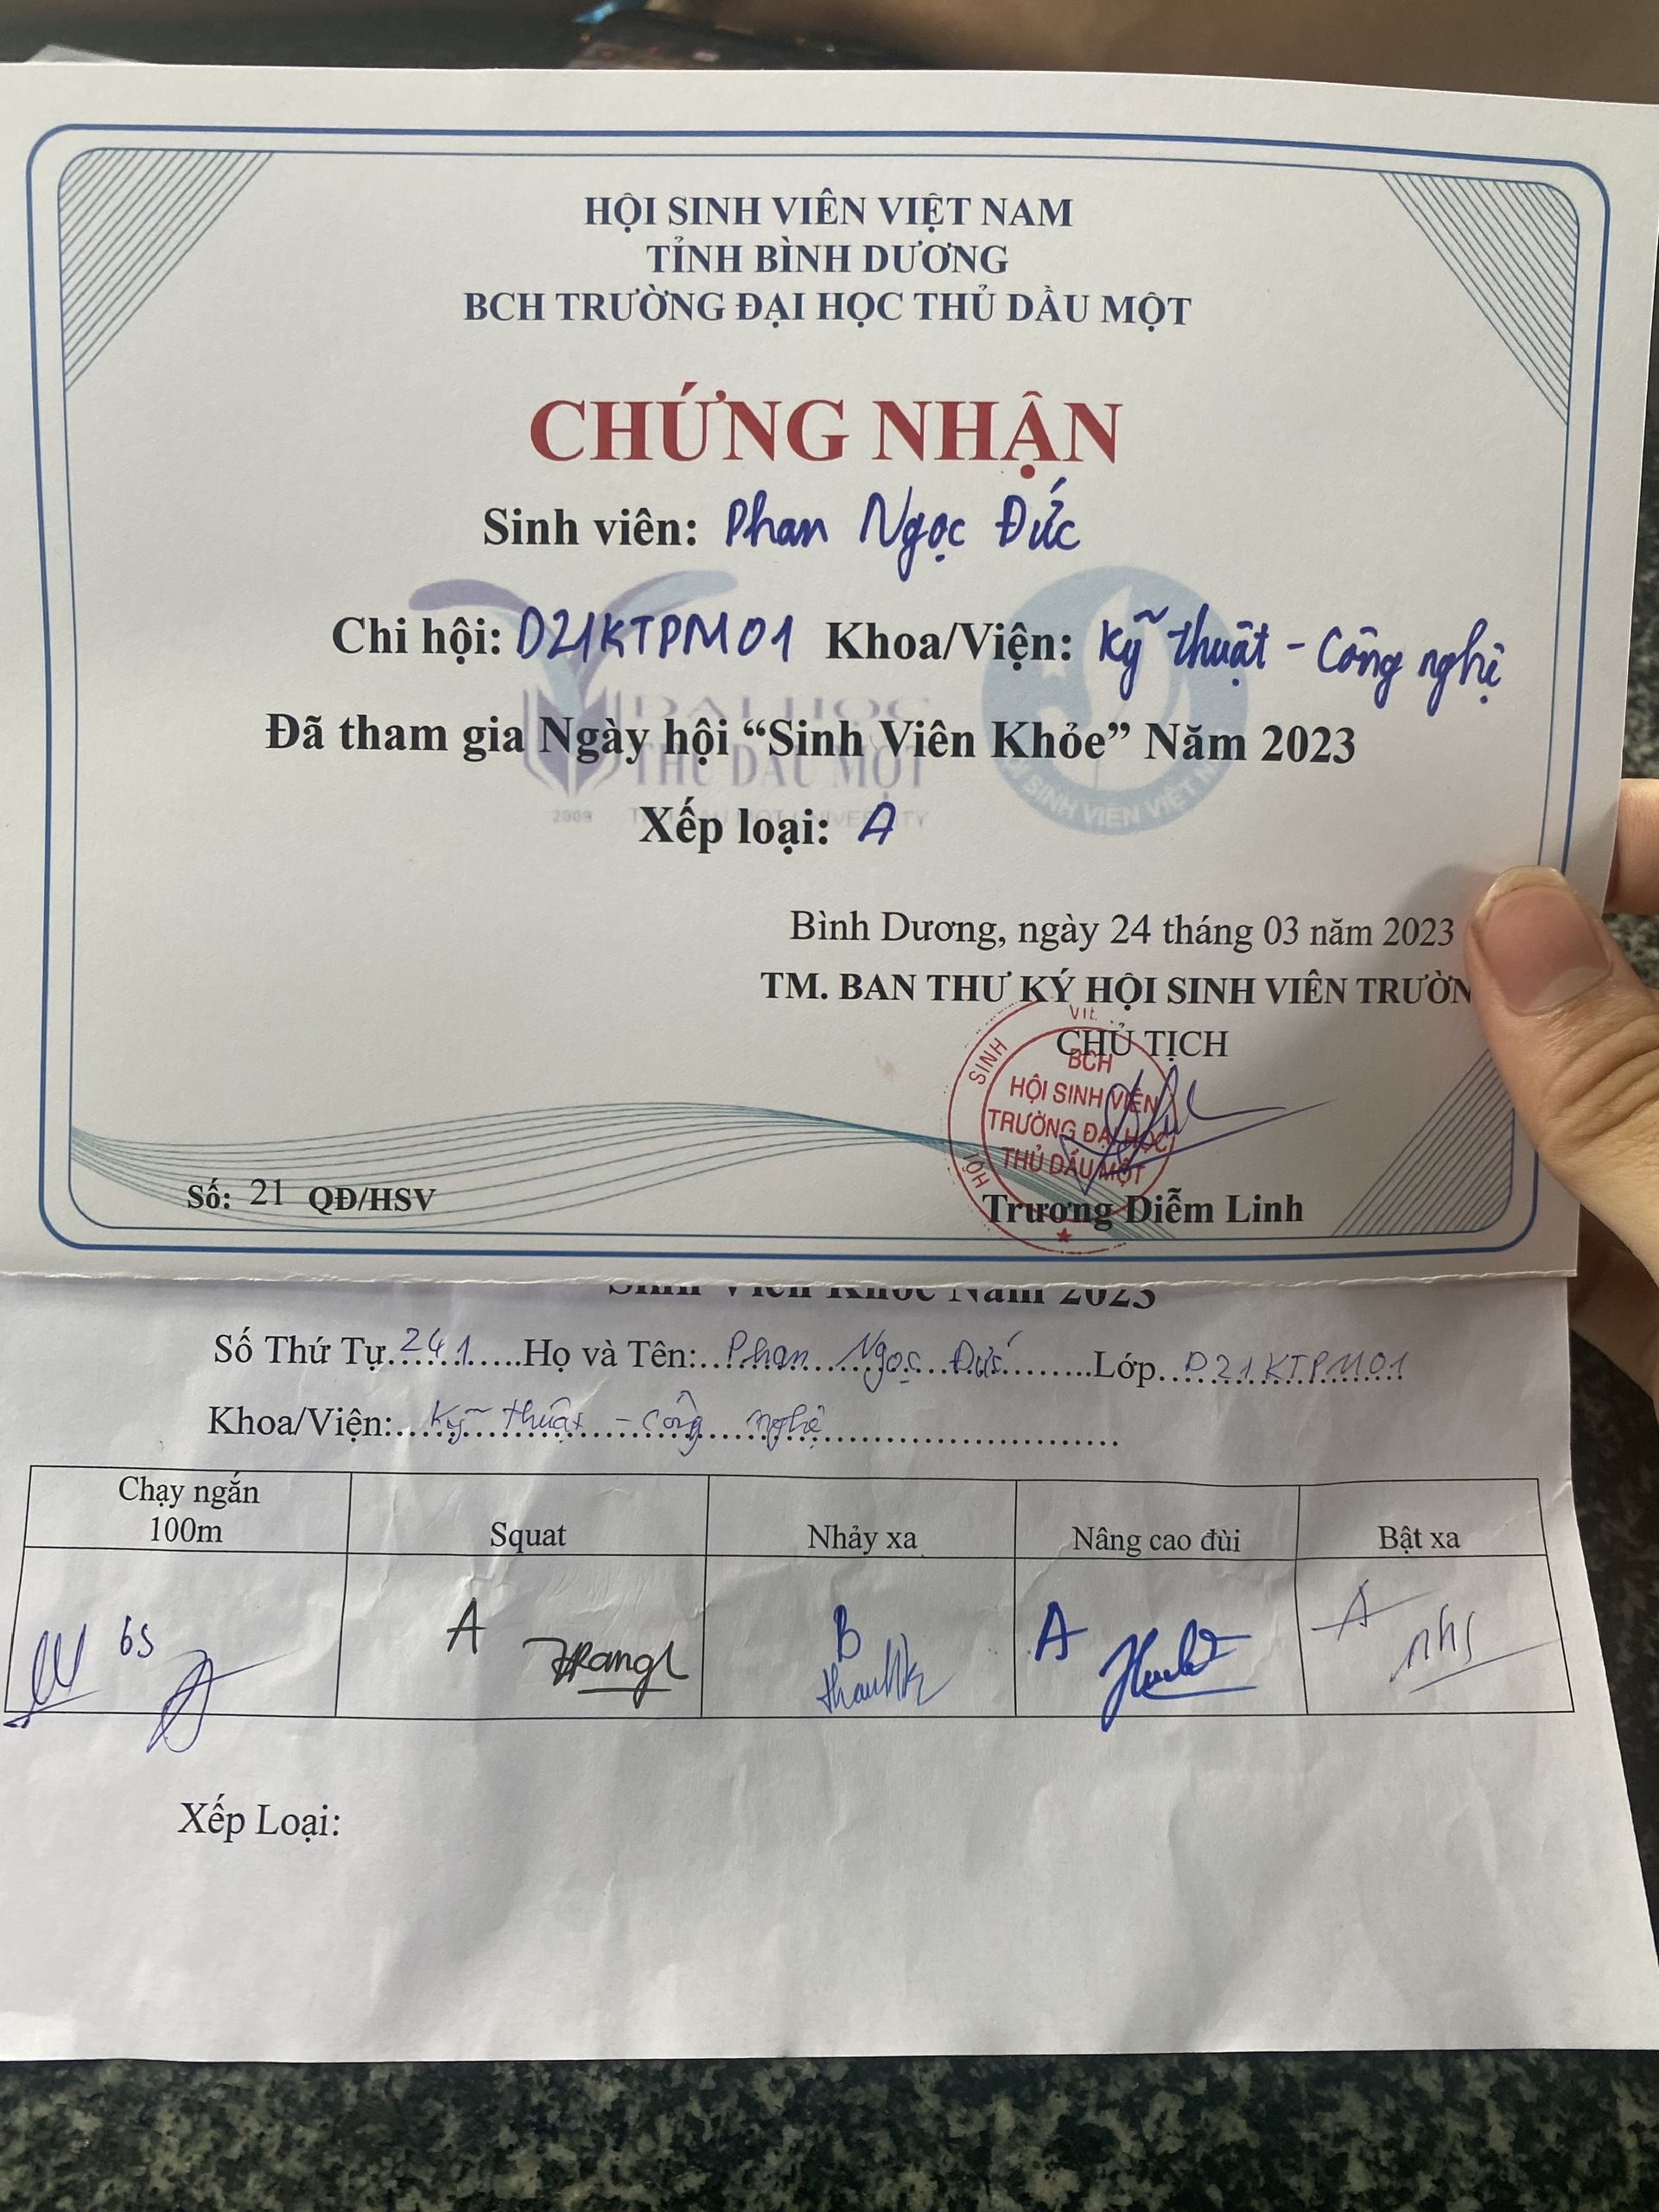 HỘI SINH VIÊN VIỆT NAM
TỈNH BÌNH DƯƠNG
BCH TRƯỜNG ĐẠI HỌC THỦ DẦU MỘT
CHỨNG NHẬN
Sinh viên: Phan Ngọc Đức
Chi hội: D21KTPM01 Khoa/Viện: Kỹ thuật - Công nghệ
ĐẠI HỌC
Đã tham gia Ngày hội “Sinh Viên Khỏe” Năm 2023
THỦ DẦU MỘT
2009 THU DAU MOT UNIVERSITY
SINH VIÊN VIỆT
Xếp loại: A
Bình Dương, ngày 24 tháng 03 năm 2023
TM. BAN THƯ KÝ HỘI SINH VIÊN TRƯỜN
CHỦ TỊCH
HỘI SINH
BCH
HỘI SINH VIÊN
TRƯỜNG ĐẠI HỌC
THỦ DẦU MỘT
Số: 21 QĐ/HSV
Trương Diễm Linh
Sinh Viên Khỏe Năm 2023
Số Thứ Tự 241 Họ và Tên: Phan Ngọc Đức Lớp D21KTPM01
Khoa/Viện: Kỹ thuật - Công nghệ
Chạy ngắn
100m Squat Nhảy xa Nâng cao đùi Bật xa
A B A A
Xếp Loại: